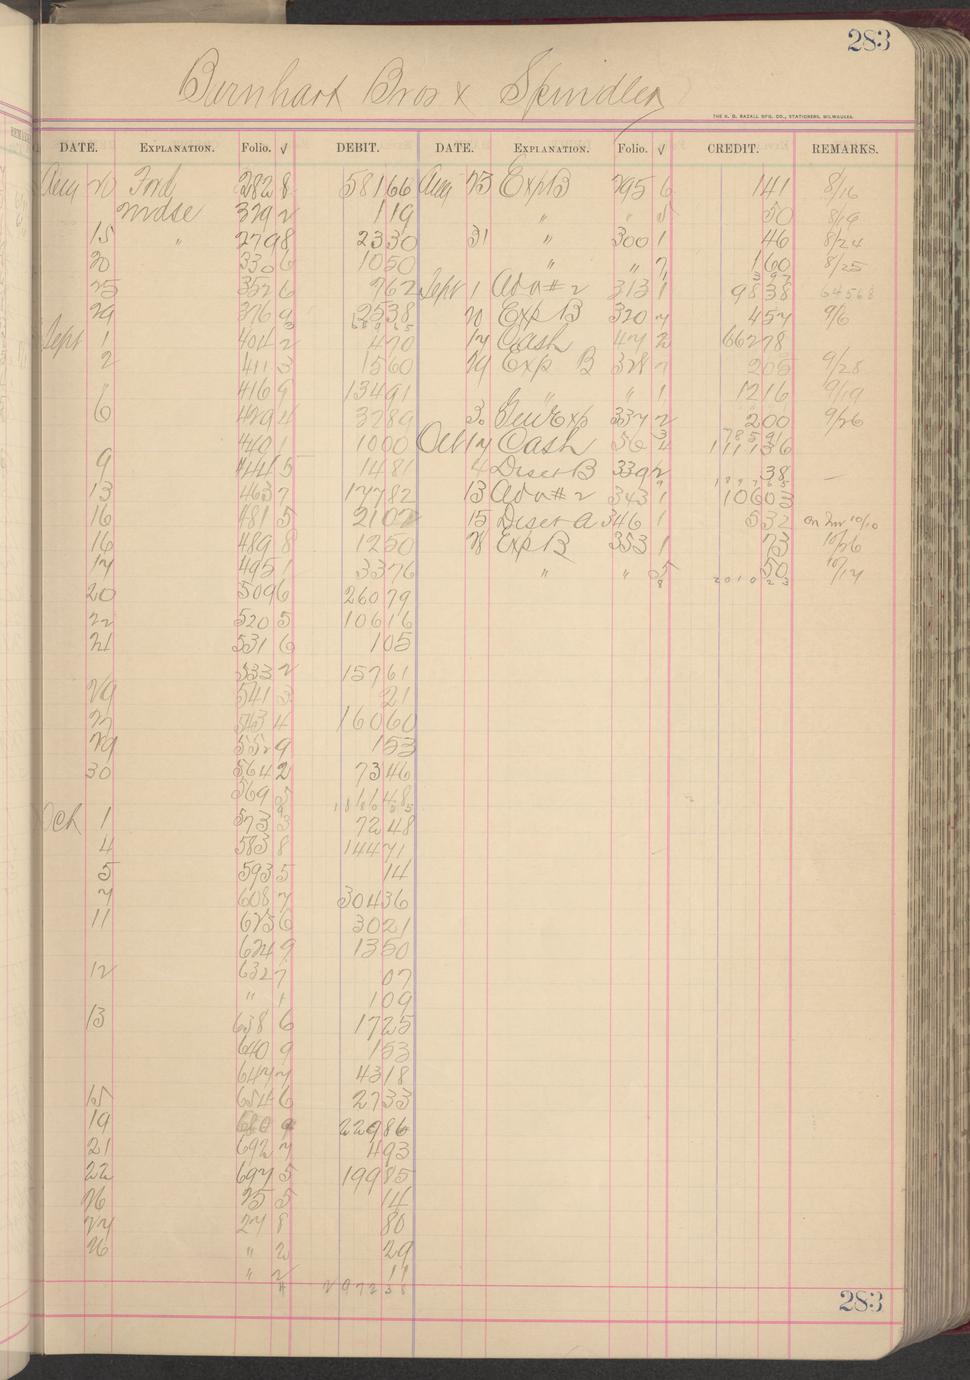 283
Barnhart Bros & Spindler
THE H. G. RAZALL MFG. CO., STATIONERS, MILWAUKEE.
DATE. EXPLANATION. Folio. √ DEBIT. DATE. EXPLANATION. Folio. √ CREDIT. REMARKS.
Aug 20 Ford 282 8 581 66 Aug 23 Exp B 295 6 1 41 8/16
Mdse 329 2 1 19 " " 5 50 8/19
15 " 279 8 23 30 31 " 300 1 46 8/24
20 330 6 10 50 " " 7 1 60 8/25
25 352 6 9 62 Sept 1 Adv # 2 313 1 98 38
29 376 9 25 38 20 Exp B 320 7 4 57 9/6
Sept 1 404 2 4 70 17 Cash 47 2 662 78
2 411 3 15 60 29 Exp B 328 7 2 05 9/28
416 9 134 91 " " 1 12 16 9/19
6 429 4 32 89 30 Gen Exp 337 2 2 00 9/26
440 1 10 00 Oct 17 Cash 56 4 1111 36
9 444 5 14 81 4 Disct B 339 2 38 —
13 463 7 177 82 13 Adv # 2 343 1 106 03
16 481 5 21 02 15 Disct A 346 1 5 32 on Inv 10/10
16 489 8 12 50 28 Exp B 353 1 73 10/26
17 495 1 33 76 " " 5 50 10/17
20 509 6 260 79 8 2010 23
22 520 5 106 16
21 531 6 1 05
533 2 157 61
29 541 3 21
27 543 4 160 60
29 552 9 1 53
30 564 2 73 46
569 5 11 48
Oct 1 573 3 72 48
4 583 8 144 71
5 593 5 14
7 608 7 304 36
11 625 6 30 21
624 9 13 50
12 632 7 07
" 1 1 09
13 638 6 17 25
640 9 1 53
647 7 43 18
15 654 6 27 33
19 680 9 229 86
21 692 7 4 93
22 697 5 199 85
26 25 5 14
27 27 8 80
26 " 2 29
" 2 11
4 2972 38
283